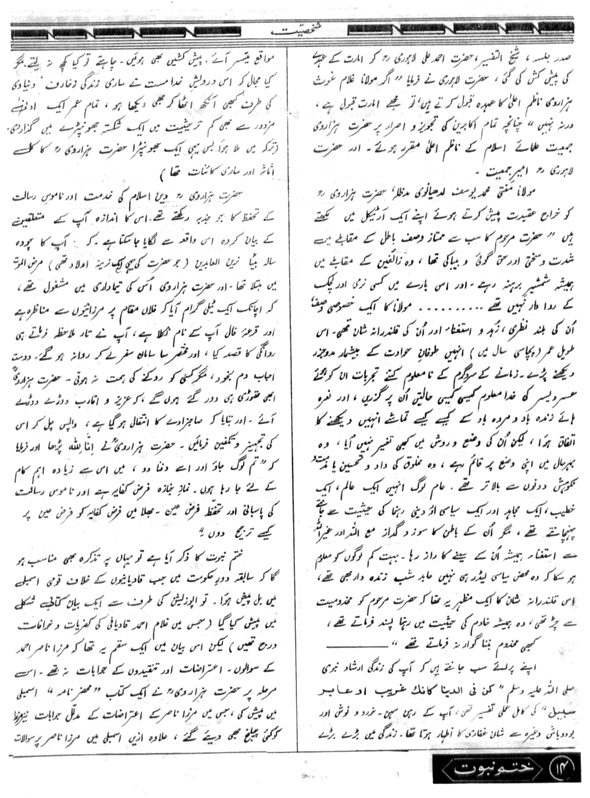 شخصیت
صدر جلسہ، شیخ التفسیر، حضرت احمد علی لاہوری رح کو امارت کے عہدے
کی پیش کش کی گئی، حضرت لاہوری نے فرمایا "اگر مولانا غلام غوث
ہزاروی ناظم اعلیٰ کا عہدہ قبول کرتے ہیں تو مجھے امارت قبول ہے،
ورنہ نہیں" چنانچہ تمام اکابرین کی تجویز و اصرار پر حضرت ہزاروی
جمیعت علمائے اسلام کے ناظم اعلیٰ مقرر ہوئے۔ اور حضرت
لاہوری رح امیر جمیعت۔
مولانا مفتی محمد یوسف لدھیانوی مدظلہ، حضرت ہزاروی رح
کو خراج عقیدت پیش کرتے ہوئے اپنے ایک آرٹیکل میں لکھتے
ہیں "حضرت مرحوم کا سب سے ممتاز وصف باطل کے مقابلے میں
شدت و سختی اور حق گوئی و بیباکی تھا، وہ زائغین کے مقابلے میں
ہمیشہ شمشیر برہنہ رہے۔ اور اس بارے میں کسی نرمی اور لچک
کے روا دار نہیں تھے ......... مولانا کا ایک خصوصی وصف
ان کی بلند نظری، زہد و استغناء اور ان کی قلندرانہ شان تھی۔ اس
طویل عمر (پچاسی سال میں) انہیں طوفان حوادث کے بیشمار مدوجزر
دیکھنے پڑے۔ زمانے کے سردگرم کے نامعلوم کتنے تجربات ان کو ہوئے
عسر و یسر کی خدا معلوم کیسی کیسی حالتیں ان پر گزریں، اور نعرہ
ہائے زندہ باد و مردہ باد کے کیسے کیسے تماشے انہیں دیکھنے کا
اتفاق ہوا، لیکن ان کی وضع و روش میں کبھی تغیر نہیں آیا، وہ
بہرحال میں اپنی وضع پر قائم رہے، وہ مخلوق کی داد و تحسین یا مذمت
نکوہش دونوں سے بالا تر تھے۔ عام لوگ انہیں ایک عالم، ایک
خطیب، ایک مجاہد اور ایک سیاسی اور دینی رہنما کی حیثیت سے جانتے
پہچانتے تھے، مگر ان کے باطن کا سوز و گداز مع اللہ اور غیراللہ
سے استغناء ہمیشہ ان کے سینے کا راز رہا۔ بہت کم لوگوں کو معلوم
ہو سکا کہ وہ محض سیاسی لیڈر ہی نہیں عابد شب زندہ دار بھی تھے،
اس قلندرانہ شان کا ایک مظہر یہ تھا کہ حضرت مرحوم کو مخدومیت
سے چڑ تھی، وہ ہمیشہ خادم کی حیثیت میں رہنا پسند فرماتے تھے،
کبھی مخدوم بننا گوارا نہ فرماتے تھے"
اپنے پرائے سب جانتے ہیں کہ آپ کی زندگی ارشاد نبوی
صلی اللہ علیہ وسلم "کن فی الدنیا کانک غریب او عابر
سبیل" کی کامل عملی تفسیر تھی، آپ کے رہن سہن۔ خورد و نوش اور
بودوباش وغیرہ سے شان غفاری کا اظہار ہوتا تھا۔ زندگی میں بڑے بڑے
مواقع میسر آئے۔ پیش کشیں بھی ہوئیں۔ چاہتے تو کیا کچھ نہ لیتے۔ مگر
کیا مجال کہ اس درویش خدامست نے ساری زندگی زخارف دنیاوی
کی طرف کبھی آنکھ اٹھا کر بھی دیکھا ہو، تمام عمر ایک ادنیٰ
مزدور سے بھی کم تر حیثیت میں ایک شکستہ جھونپڑے میں گزار دی
(ترکہ میں ملا ہوا بس یہی ایک جھونپڑا حضرت ہزاروی رح کا کل
اثاثہ اور ساری کائنات تھا)
حضرت ہزاروی رح دین اسلام کی خدمت اور ناموس رسالت
کے تحفظ کا جو جذبہ رکھتے تھے۔ اس کا اندازہ آپ کے متعلقین
کے بیان کردہ اس واقعہ سے لگایا جا سکتا ہے۔ کہ آپ کا چودہ
سالہ بیٹا زین العابدین (جو حضرت کی یہی ایک نرینہ اولاد تھی) مرض الموت
میں مبتلا تھا۔ اور حضرت ہزاروی اس کی تیمارداری میں مشغول تھے،
کہ اچانک ایک ٹیلی گرام آیا کہ فلاں مقام پر مرزائیوں سے مناظرہ ہے
اور قرعۂ فال آپ کے نام نکلا ہے، آپ نے تار ملاحظہ فرماتے ہی
روانگی کا قصد کیا، اور مختصر سا سامان سفر لے کر روانہ ہو گئے۔ دوست
احباب دم بخود، مگر کسی کو روکنے کی ہمت نہ ہوتی۔ حضرت ہزاروی رح
ابھی تھوڑی ہی دور گئے ہوں گے، کہ عزیز و اقارب دوڑے دوڑے
آئے۔ اور بتایا کہ صاحبزادے کا انتقال ہو گیا ہے، واپس چل کر اس
کی تجہیز و تکفین فرمائیں۔ حضرت ہزاروی رح نے انا للہ پڑھا اور فرمایا
کہ "تم لوگ جاؤ اور اسے دفنا دو، میں اس سے زیادہ اہم کام
کے لئے جا رہا ہوں۔ نماز جنازہ فرض کفایہ ہے اور ناموس رسالت
کی پاسبانی اور تحفظ فرض عین۔ بھلا میں فرض کفایہ کو فرض عین پر
کیسے ترجیح دوں"
ختم نبوت کا ذکر آیا ہے تو میاں پر تذکرہ بھی مناسب ہو
گا کہ سابقہ دور حکومت میں جب قادیانیوں کے خلاف قومی اسمبلی
میں بل پیش ہوا۔ تو اپوزیشن کی طرف سے ایک بیان کتابی شکل
میں پیش کیا گیا (جس میں غلام احمد قادیانی کی کفریات و خرافات
درج تھیں) لیکن اس بیان میں ایک سقم یہ تھا کہ مرزا ناصر احمد
کے سوالوں۔ اعتراضات اور تنقیدوں کے جوابات نہ تھے۔ اسے
مرحلہ پر حضرت ہزاروی رح نے ایک کتاب "محضر نامہ" اسمبلی
میں پیش کی، جس میں مرزا ناصر کے اعتراضات کے مدلل جوابات
کو کئی چیلنج بھی دیئے گئے، علاوہ ازیں اسمبلی میں مرزا ناصر پر سوالات
ختم نبوت ۱۴